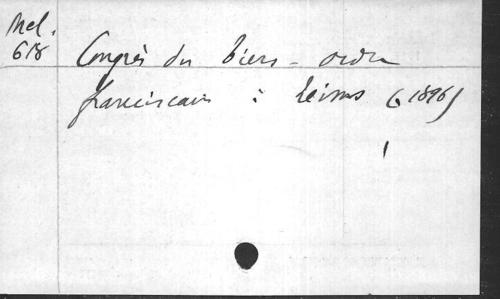 Mel.
618
Congrès du Tiers-ordre
franciscain : Reims (1896)